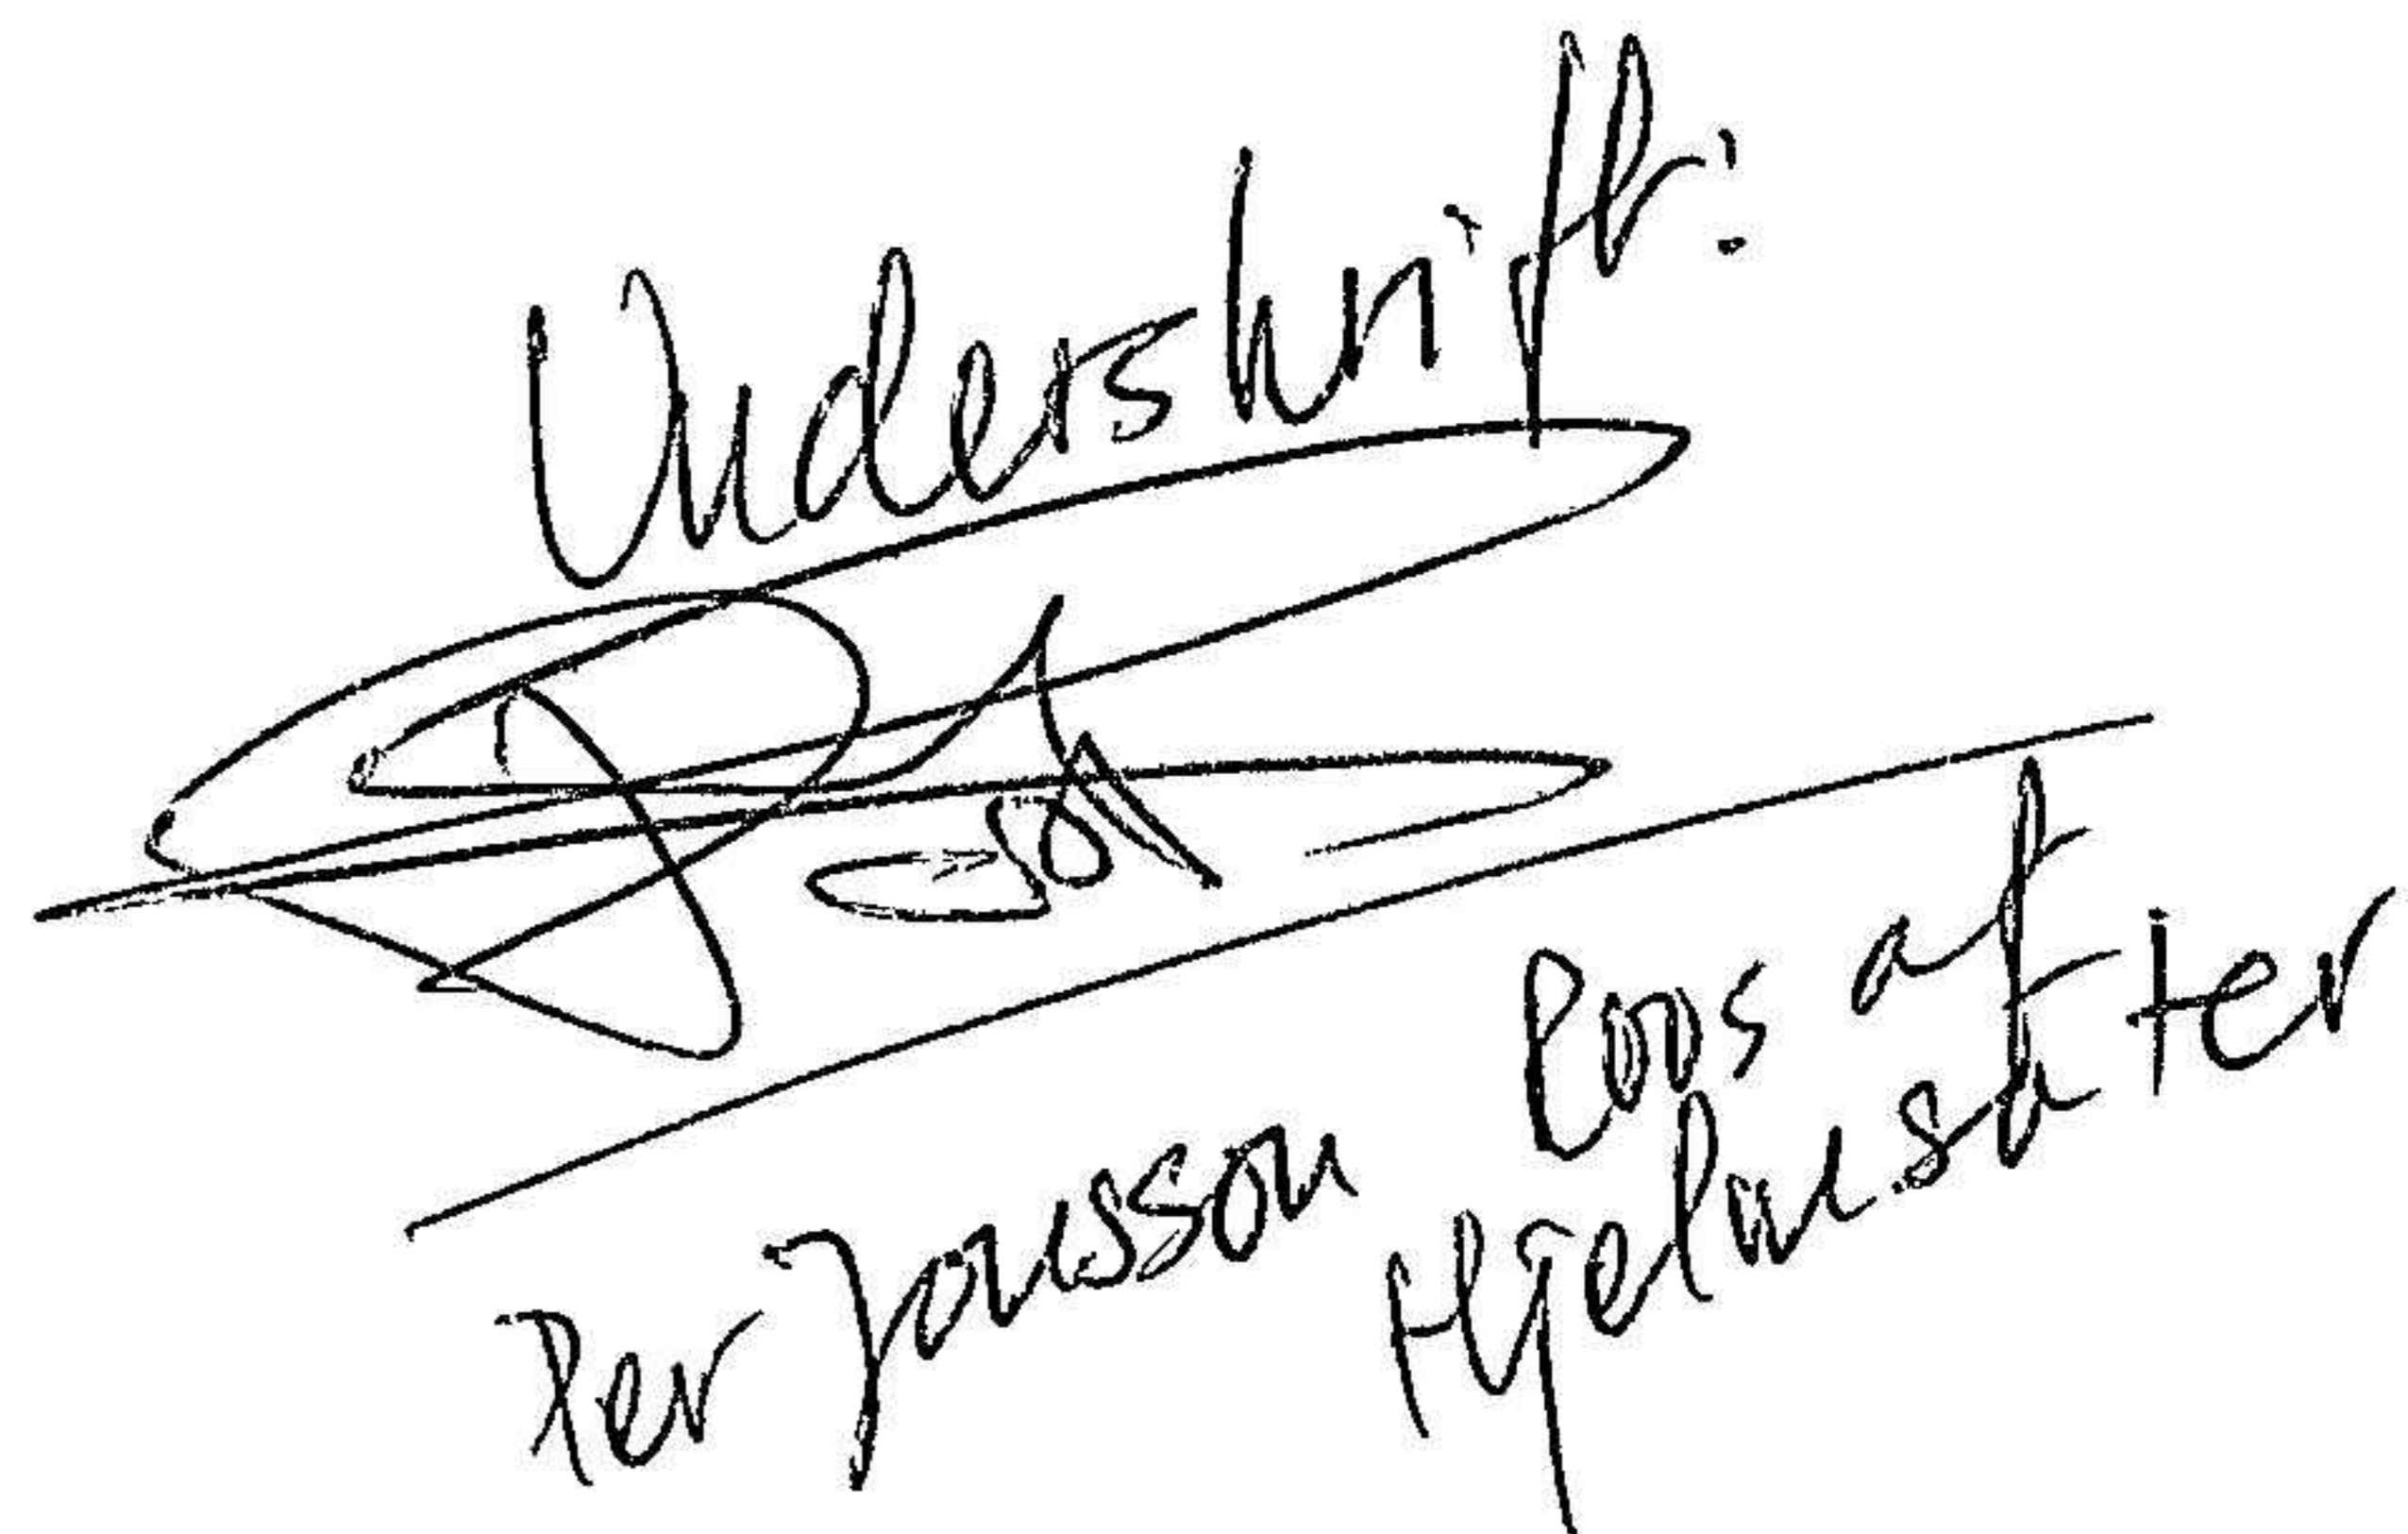 Underskrift:
Per Jonsson Roos af
Hjelmsäter